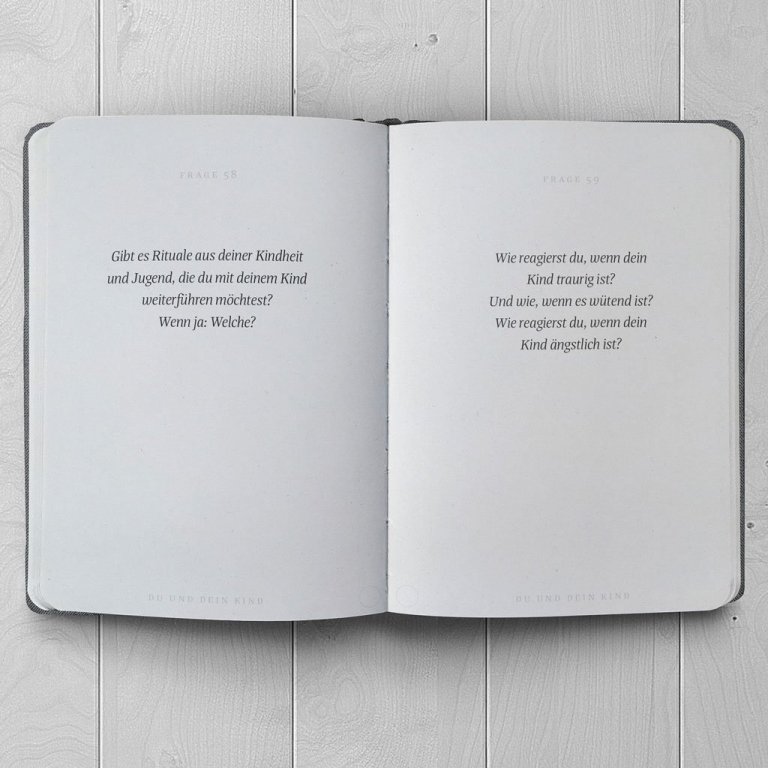 FRAGE 58
Gibt es Rituale aus deiner Kindheit
und Jugend, die du mit deinem Kind
weiterführen möchtest?
Wenn ja: Welche?
DU UND DEIN KIND
FRAGE 59
Wie reagierst du, wenn dein
Kind traurig ist?
Und wie, wenn es wütend ist?
Wie reagierst du, wenn dein
Kind ängstlich ist?
DU UND DEIN KIND